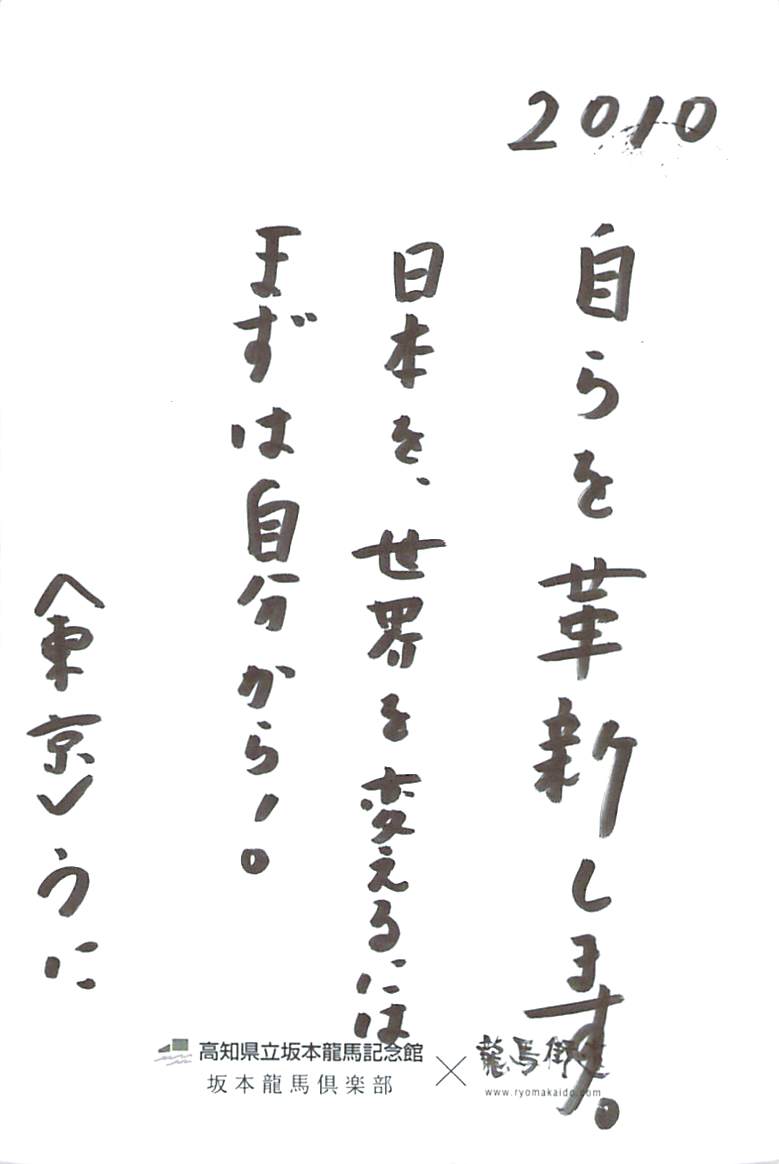 2010
自らを革新します。
日本を、世界を変えるには
まずは自分から!
<東京>うに
高知県立坂本龍馬記念館
坂本龍馬倶楽部
×
龍馬街道
www.ryomakaido.com